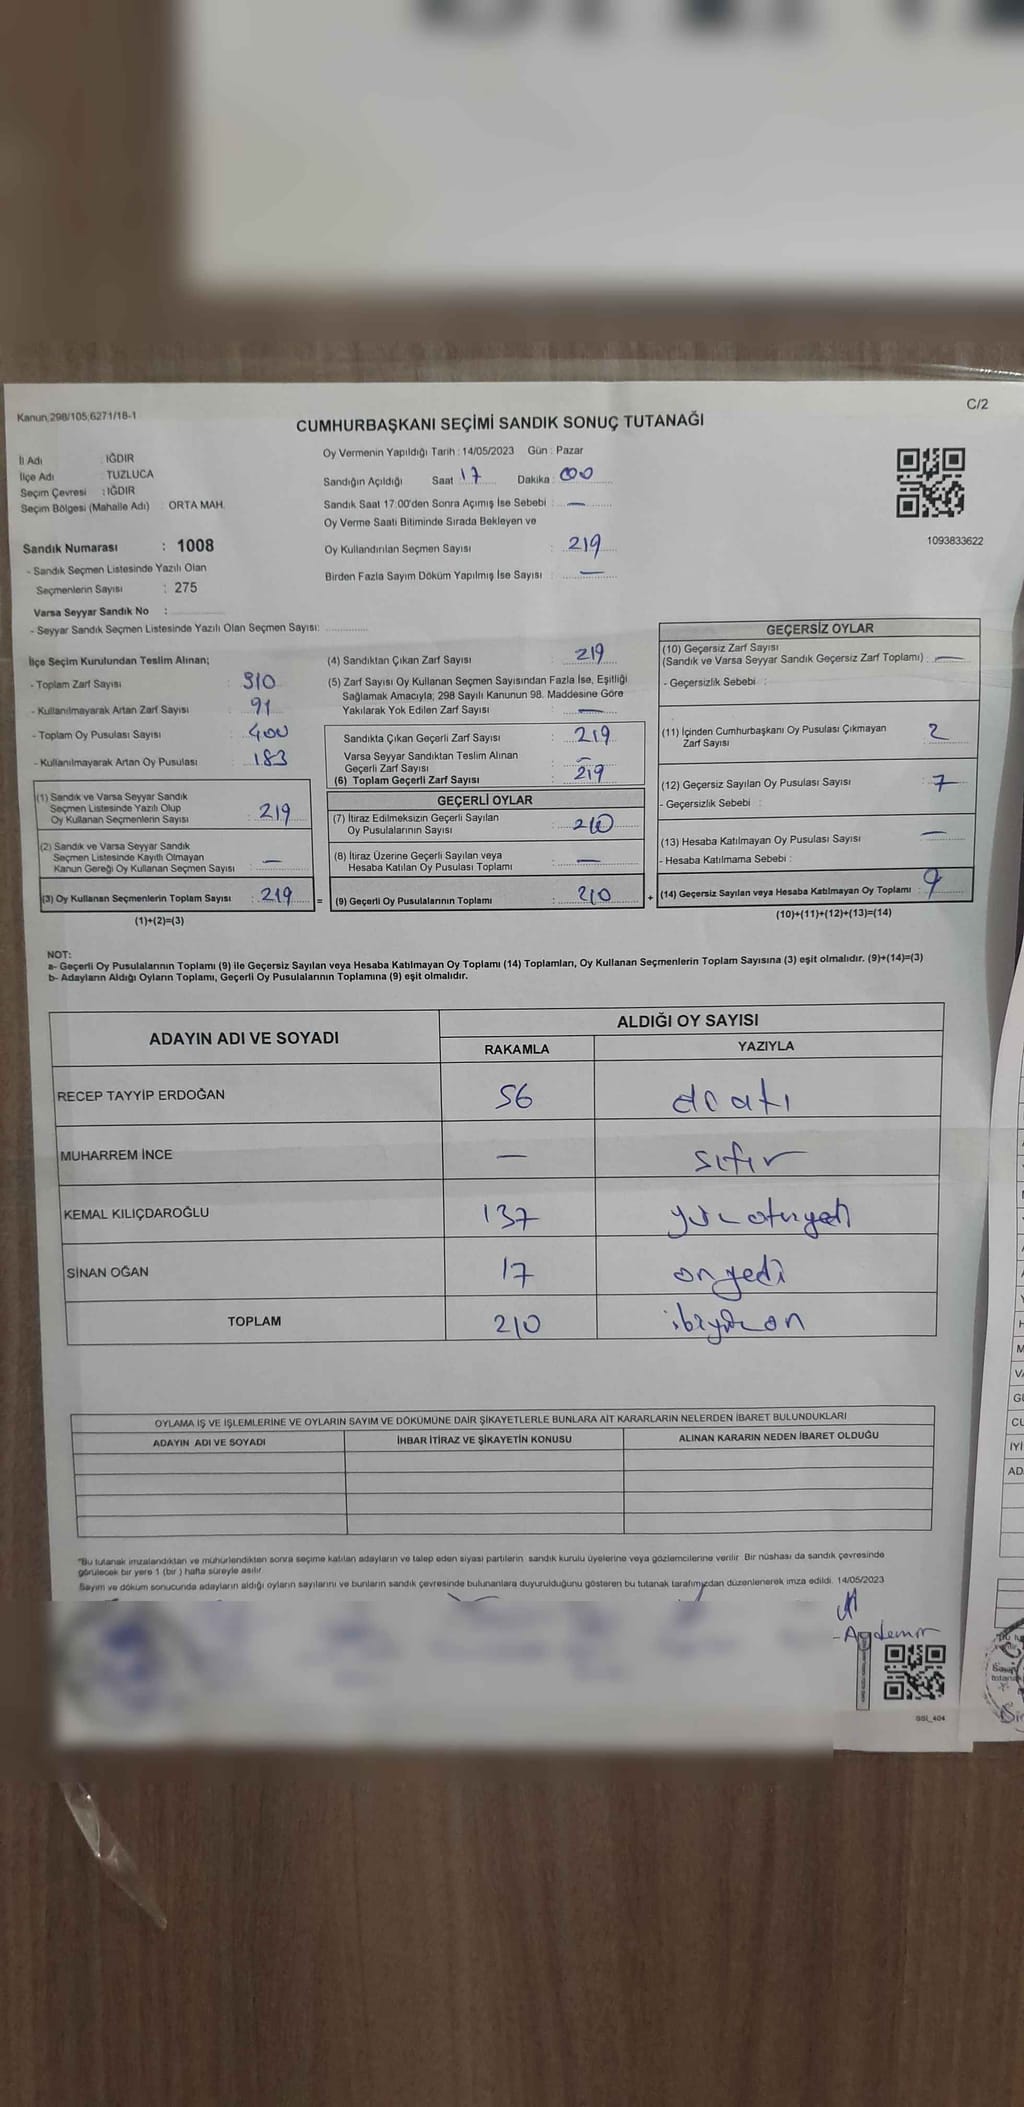 C/2
Kanun;298/105;6271/18-1
CUMHURBAŞKANI SEÇİMİ SANDIK SONUÇ TUTANAĞI
İl Adı : IĞDIR
İlçe Adı : TUZLUCA
Seçim Çevresi : IĞDIR
Seçim Bölgesi (Mahalle Adı) : ORTA MAH.
Sandık Numarası : 1008
- Sandık Seçmen Listesinde Yazılı Olan
Seçmenlerin Sayısı : 275
Varsa Seyyar Sandık No :
- Seyyar Sandık Seçmen Listesinde Yazılı Olan Seçmen Sayısı:
Oy Vermenin Yapıldığı Tarih : 14/05/2023 Gün : Pazar
Sandığın Açıldığı Saat 17 Dakika : 00
Sandık Saat 17:00'den Sonra Açımış İse Sebebi : —
Oy Verme Saati Bitiminde Sırada Bekleyen ve
Oy Kullandırılan Seçmen Sayısı : 219
Birden Fazla Sayım Döküm Yapılmış İse Sayısı : —
1093833622
İlçe Seçim Kurulundan Teslim Alınan;
- Toplam Zarf Sayısı : 310
- Kullanılmayarak Artan Zarf Sayısı : 91
- Toplam Oy Pusulası Sayısı : 400
- Kullanılmayarak Artan Oy Pusulası : 183
(1) Sandık ve Varsa Seyyar Sandık
Seçmen Listesinde Yazılı Olup
Oy Kullanan Seçmenlerin Sayısı : 219
(2) Sandık ve Varsa Seyyar Sandık
Seçmen Listesinde Kayıtlı Olmayan
Kanun Gereği Oy Kullanan Seçmen Sayısı : —
(3) Oy Kullanan Seçmenlerin Toplam Sayısı : 219 =
(1)+(2)=(3)
(4) Sandıktan Çıkan Zarf Sayısı : 219
(5) Zarf Sayısı Oy Kullanan Seçmen Sayısından Fazla İse, Eşitliği
Sağlamak Amacıyla; 298 Sayılı Kanunun 98. Maddesine Göre
Yakılarak Yok Edilen Zarf Sayısı : —
Sandıkta Çıkan Geçerli Zarf Sayısı : 219
Varsa Seyyar Sandıktan Teslim Alınan
Geçerli Zarf Sayısı : —
(6) Toplam Geçerli Zarf Sayısı : 219
GEÇERLİ OYLAR
(7) İtiraz Edilmeksizin Geçerli Sayılan
Oy Pusulalarının Sayısı : 210
(8) İtiraz Üzerine Geçerli Sayılan veya
Hesaba Katılan Oy Pusulası Toplamı : —
(9) Geçerli Oy Pusulalarının Toplamı : 210 +
GEÇERSİZ OYLAR
(10) Geçersiz Zarf Sayısı
(Sandık ve Varsa Seyyar Sandık Geçersiz Zarf Toplamı) : —
- Geçersizlik Sebebi :
(11) İçinden Cumhurbaşkanı Oy Pusulası Çıkmayan
Zarf Sayısı : 2
(12) Geçersiz Sayılan Oy Pusulası Sayısı : 7
- Geçersizlik Sebebi :
(13) Hesaba Katılmayan Oy Pusulası Sayısı : —
- Hesaba Katılmama Sebebi :
(14) Geçersiz Sayılan veya Hesaba Katılmayan Oy Toplamı : 9
(10)+(11)+(12)+(13)=(14)
NOT:
a- Geçerli Oy Pusulalarının Toplamı (9) ile Geçersiz Sayılan veya Hesaba Katılmayan Oy Toplamı (14) Toplamları, Oy Kullanan Seçmenlerin Toplam Sayısına (3) eşit olmalıdır. (9)+(14)=(3)
b- Adayların Aldığı Oyların Toplamı, Geçerli Oy Pusulalarının Toplamına (9) eşit olmalıdır.
ADAYIN ADI VE SOYADI
ALDIĞI OY SAYISI
RAKAMLA YAZIYLA
RECEP TAYYİP ERDOĞAN 56
MUHARREM İNCE — sıfır
KEMAL KILIÇDAROĞLU 137
SİNAN OĞAN 17 onyedi
TOPLAM 210
OYLAMA İŞ VE İŞLEMLERİNE VE OYLARIN SAYIM VE DÖKÜMÜNE DAİR ŞİKAYETLERLE BUNLARA AİT KARARLARIN NELERDEN İBARET BULUNDUKLARI
ADAYIN ADI VE SOYADI İHBAR İTİRAZ VE ŞİKAYETİN KONUSU ALINAN KARARIN NEDEN İBARET OLDUĞU
"Bu tutanak imzalandıktan ve mühürlendikten sonra seçime katılan adayların ve talep eden siyasi partilerin sandık kurulu üyelerine veya gözlemcilerine verilir. Bir nüshası da sandık çevresinde
görülecek bir yere 1 (bir ) hafta süreyle asılır.
Sayım ve döküm sonucunda adayların aldığı oyların sayılarını ve bunların sandık çevresinde bulunanlara duyurulduğunu gösteren bu tutanak tarafımızdan düzenlenerek imza edildi. 14/05/2023